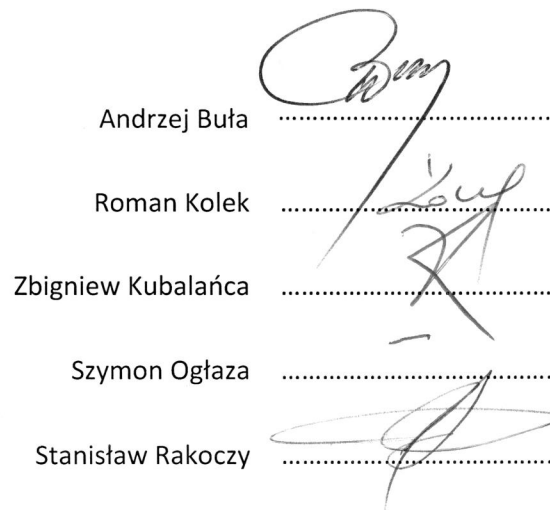 Andrzej Buła ..............................
Roman Kolek ..............................
Zbigniew Kubalańca ..............................
Szymon Ogłaza ..............................
Stanisław Rakoczy ..............................